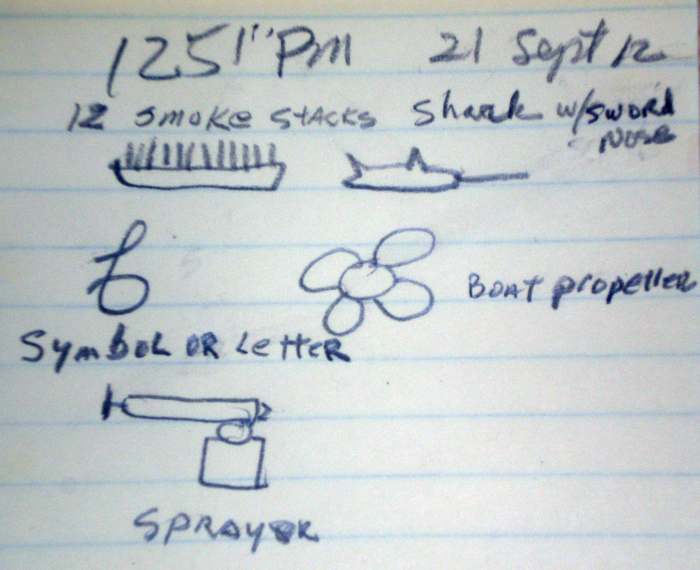 1251" PM 21 Sept 12
12 SMOKE STACKS Shark w/SWORD
NOSE
BOAT propeller
SYMBOL OR LETTER
SPRAYER